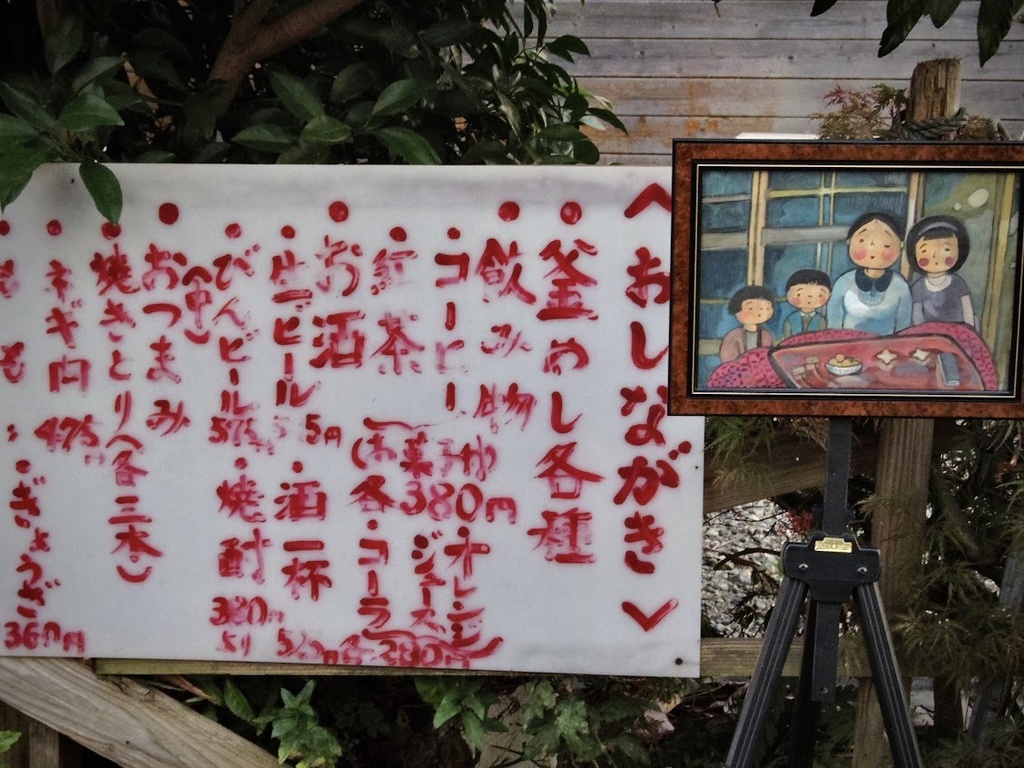 〈おしながき〉
・釜めし各種
・飲み物
・コーヒー
・紅茶
(お菓子付)
各380円
・オレンジジュース
・コーラ
各280円
・お酒
・生ビール
・びんビール
(中)
575円
・酒一杯
・焼酎
380円
より
・おつまみ
・焼きとり(各三本)
・ネギ肉
475
・もも
・ぎょうざ
360円